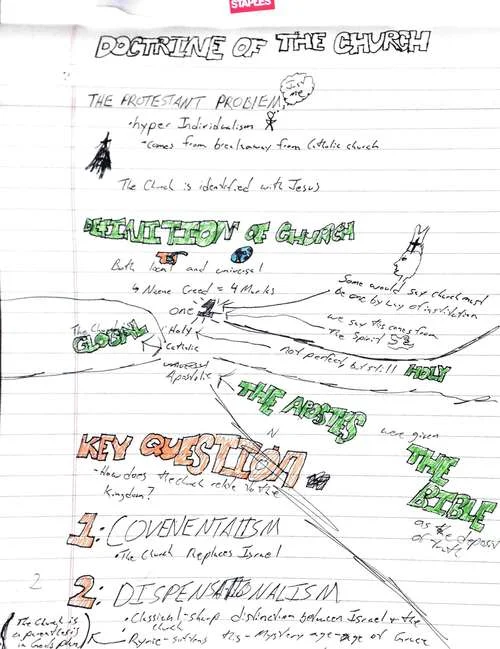 STAPLES
DOCTRINE OF THE CHURCH
Just me
THE PROTESTANT PROBLEM
• hyper Individualism
- comes from breakaway from Catholic church
The Church is identified with Jesus
DEFINITION OF CHURCH
Both local and universal
↳ Nicene Creed = 4 Marks
Some would say church must
be one by way of institution
one 1
we say this comes from
the Spirit
The Church is
GLOBAL
Holy
not perfect, but still HOLY
Catholic
universal
Apostolic
THE APOSTES were given
THE
BIBLE
as the deposit
of truth
N
KEY QUESTION
- How does the church relate to the
Kingdom?
1: COVENENTALISM
• The Church Replaces Israel
2
2: DISPENSATIONALISM
• Classical - sharp distinction between Israel + the
church
(The Church is
a parenthesis
in Gods plan)
Ryrie - the - Mystery age - age of Grace